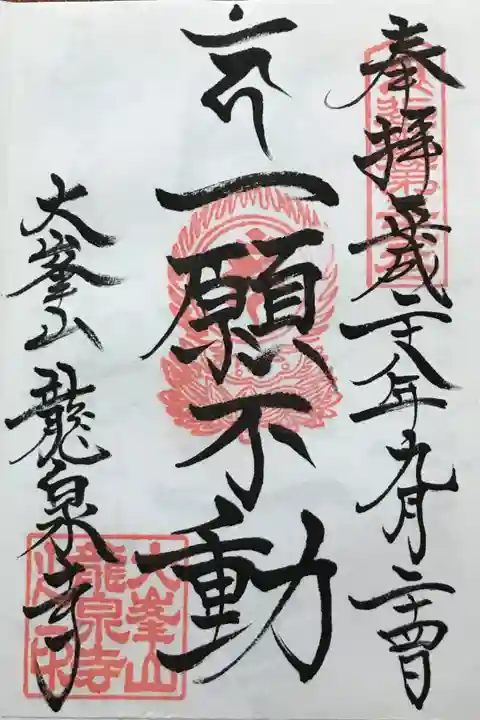 奉拝 平成二十八年九月二十四日
一願不動
大峯山龍泉寺
大峯山
龍泉寺